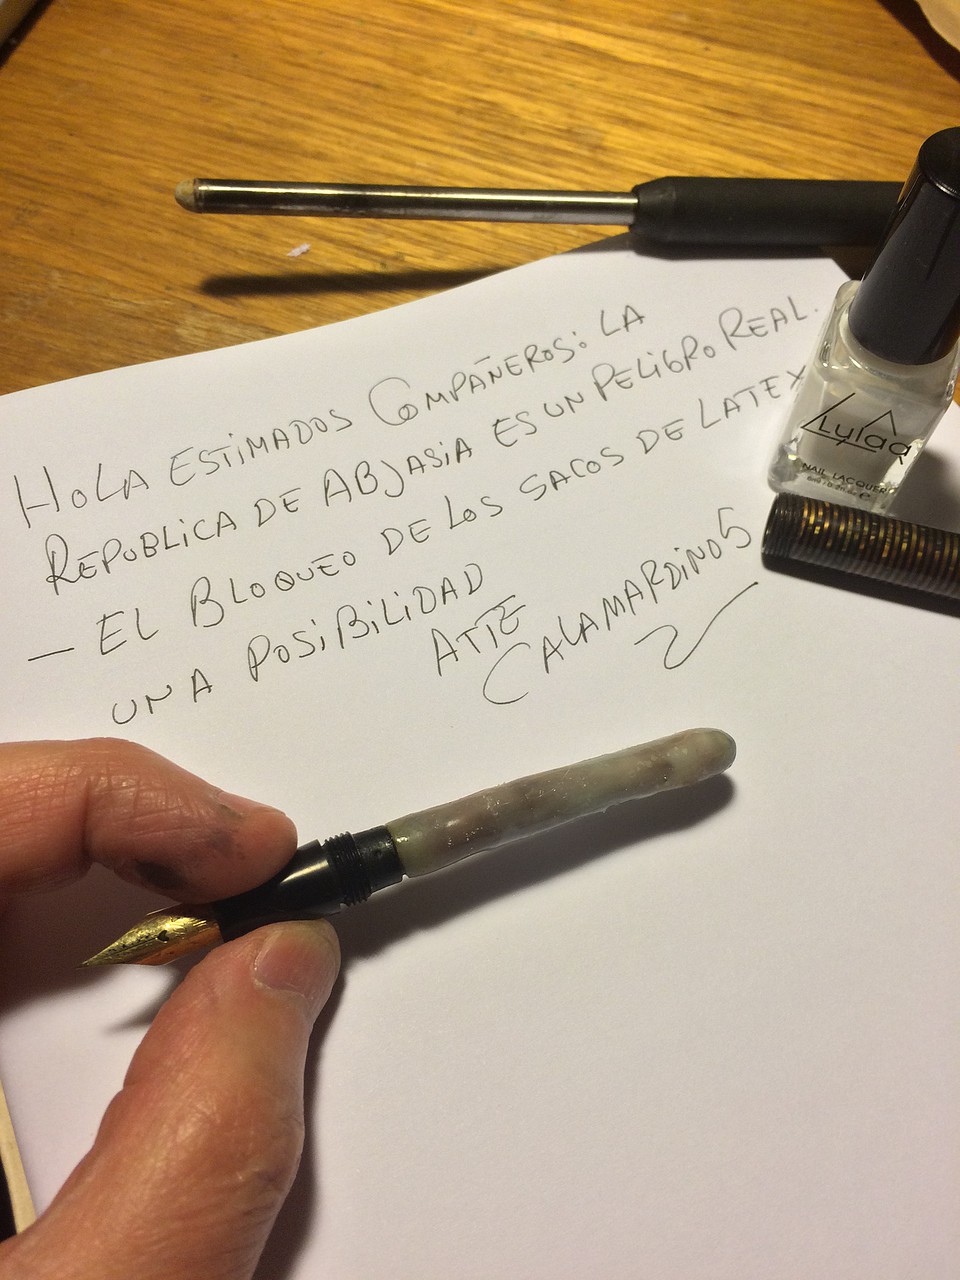 HOLA ESTIMADOS COMPAÑEROS: LA
REPUBLICA DE ABJASIA ES UN PELIGRO REAL.
— EL BLOQUEO DE LOS SACOS DE LATEX
UNA POSIBILIDAD
ATTE
CALAMARDINO5
Lulaa
NAIL LACQUER